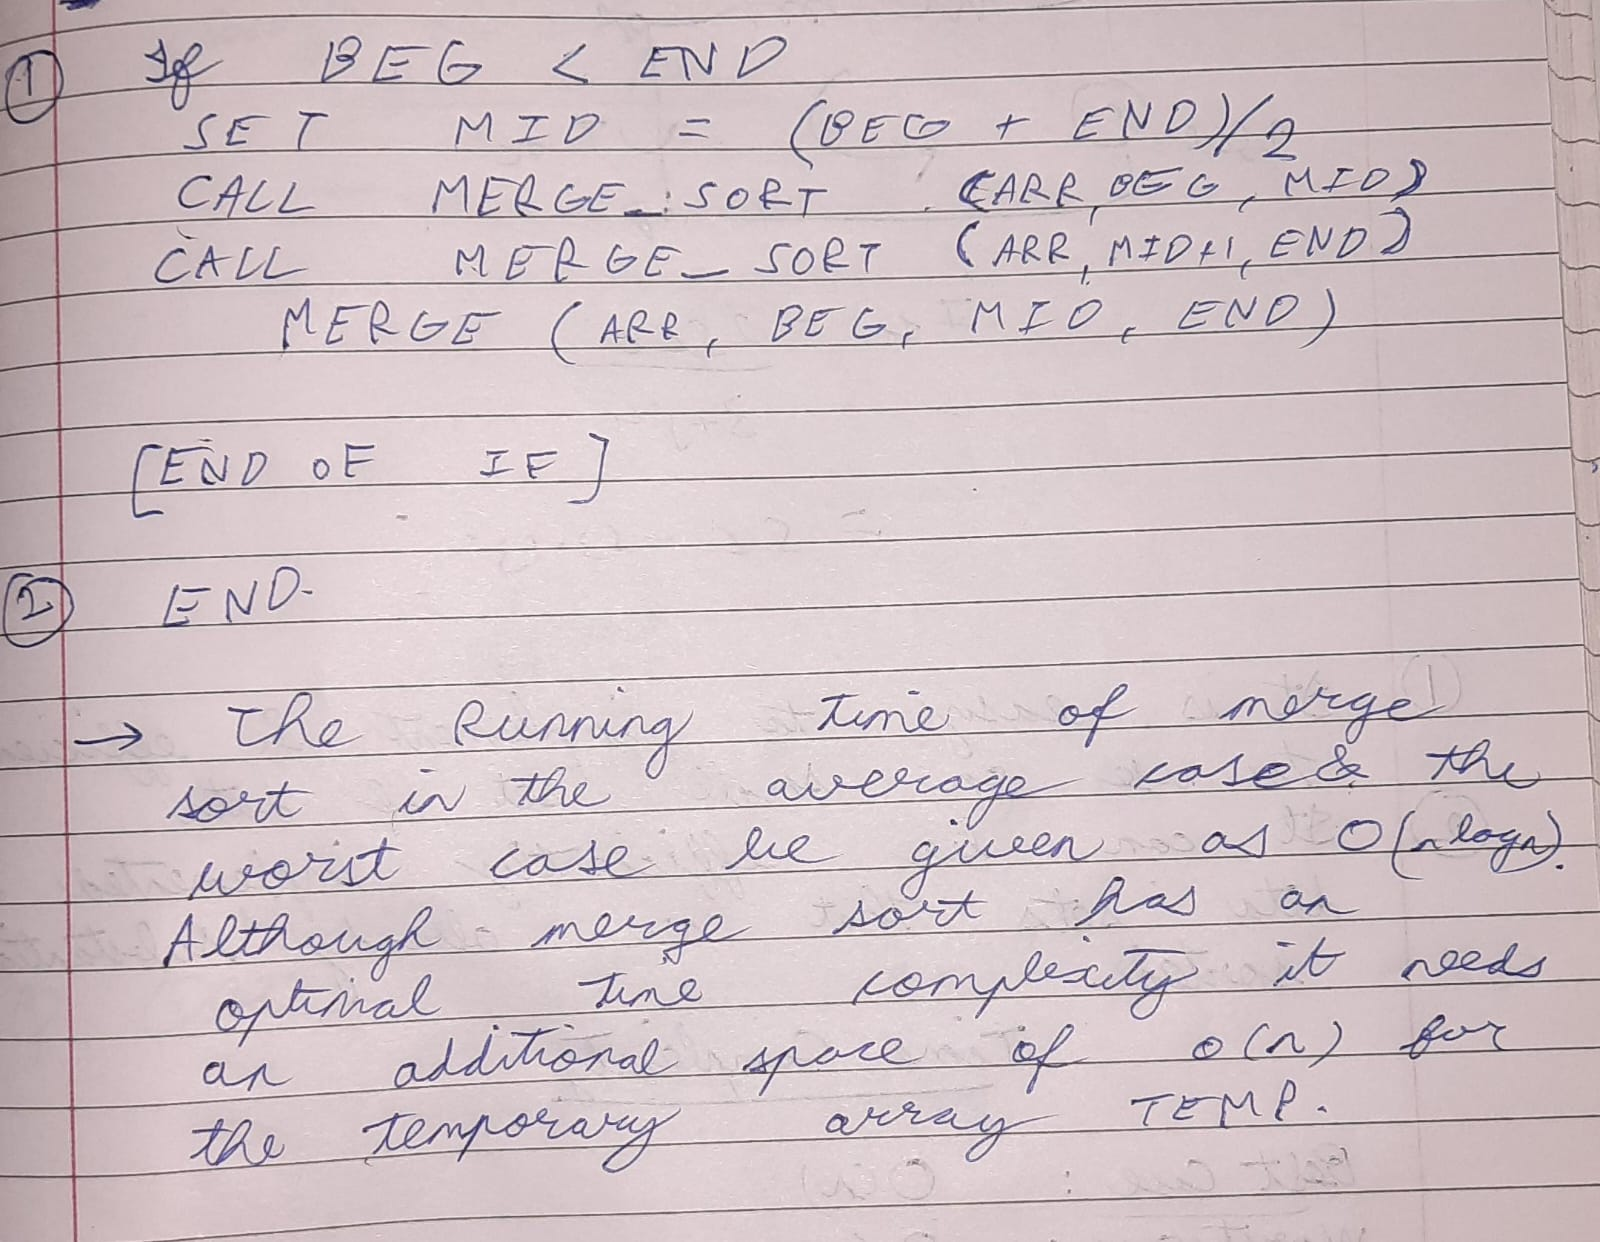 ① If BEG < END
SET MID = (BEG + END)/2
CALL MERGE_SORT (ARR, BEG, MID)
CALL MERGE_SORT (ARR, MID+1, END)
MERGE (ARR, BEG, MID, END)
[END OF IF]
② END.
→ The Running time of merge
sort in the average case & the
worst case be given as O(n logn).
Although merge sort has an
optimal time complexity it needs
an additional space of o(n) for
the temporary array TEMP.